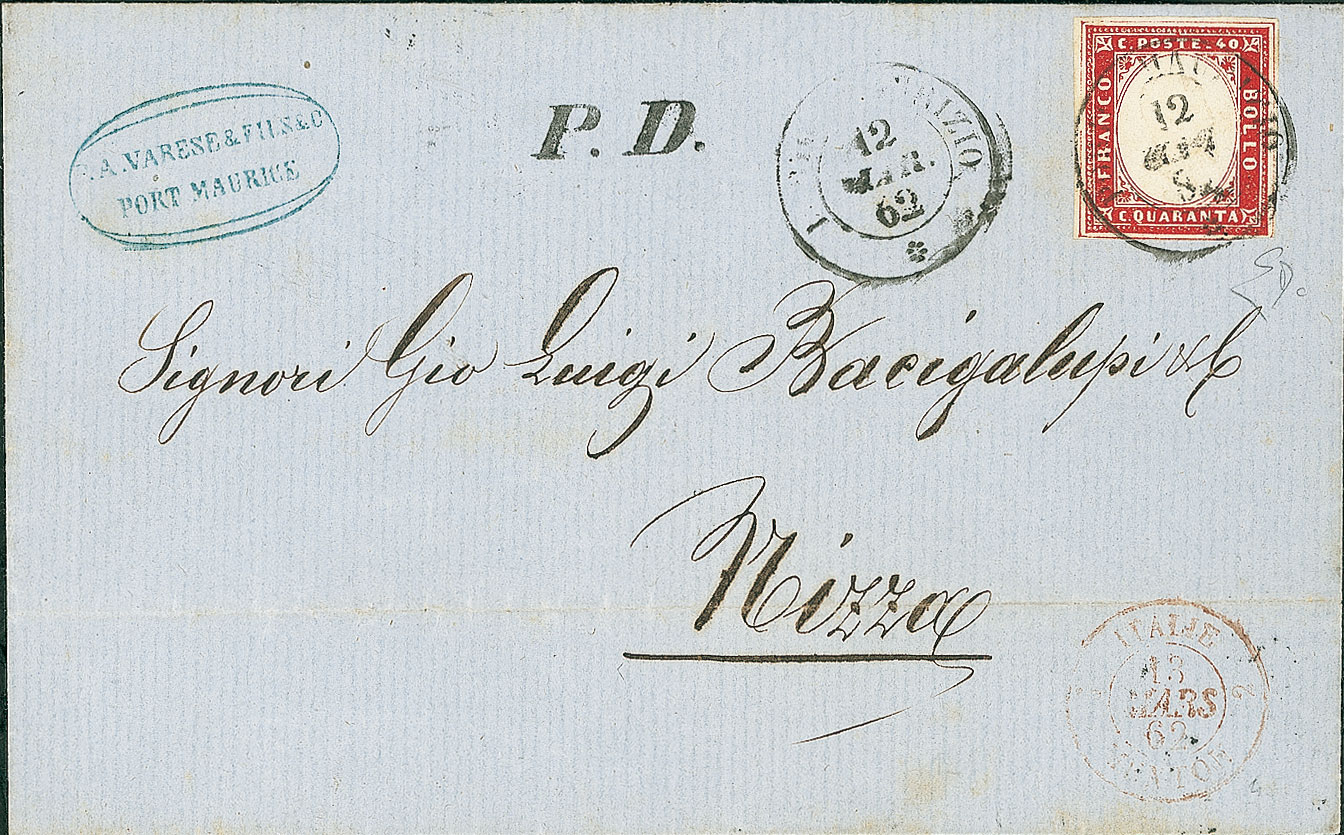 A. VARESE & FILS & C
PORT MAURICE
P. D.
12
MAR.
62
C. POSTE. 40
FRANCO
BOLLO
C. QUARANTA
12
MAR
Signori Gio Luigi Bacigalupi & C
Nizza
ITALIE
13
MARS
62
2
MENTON